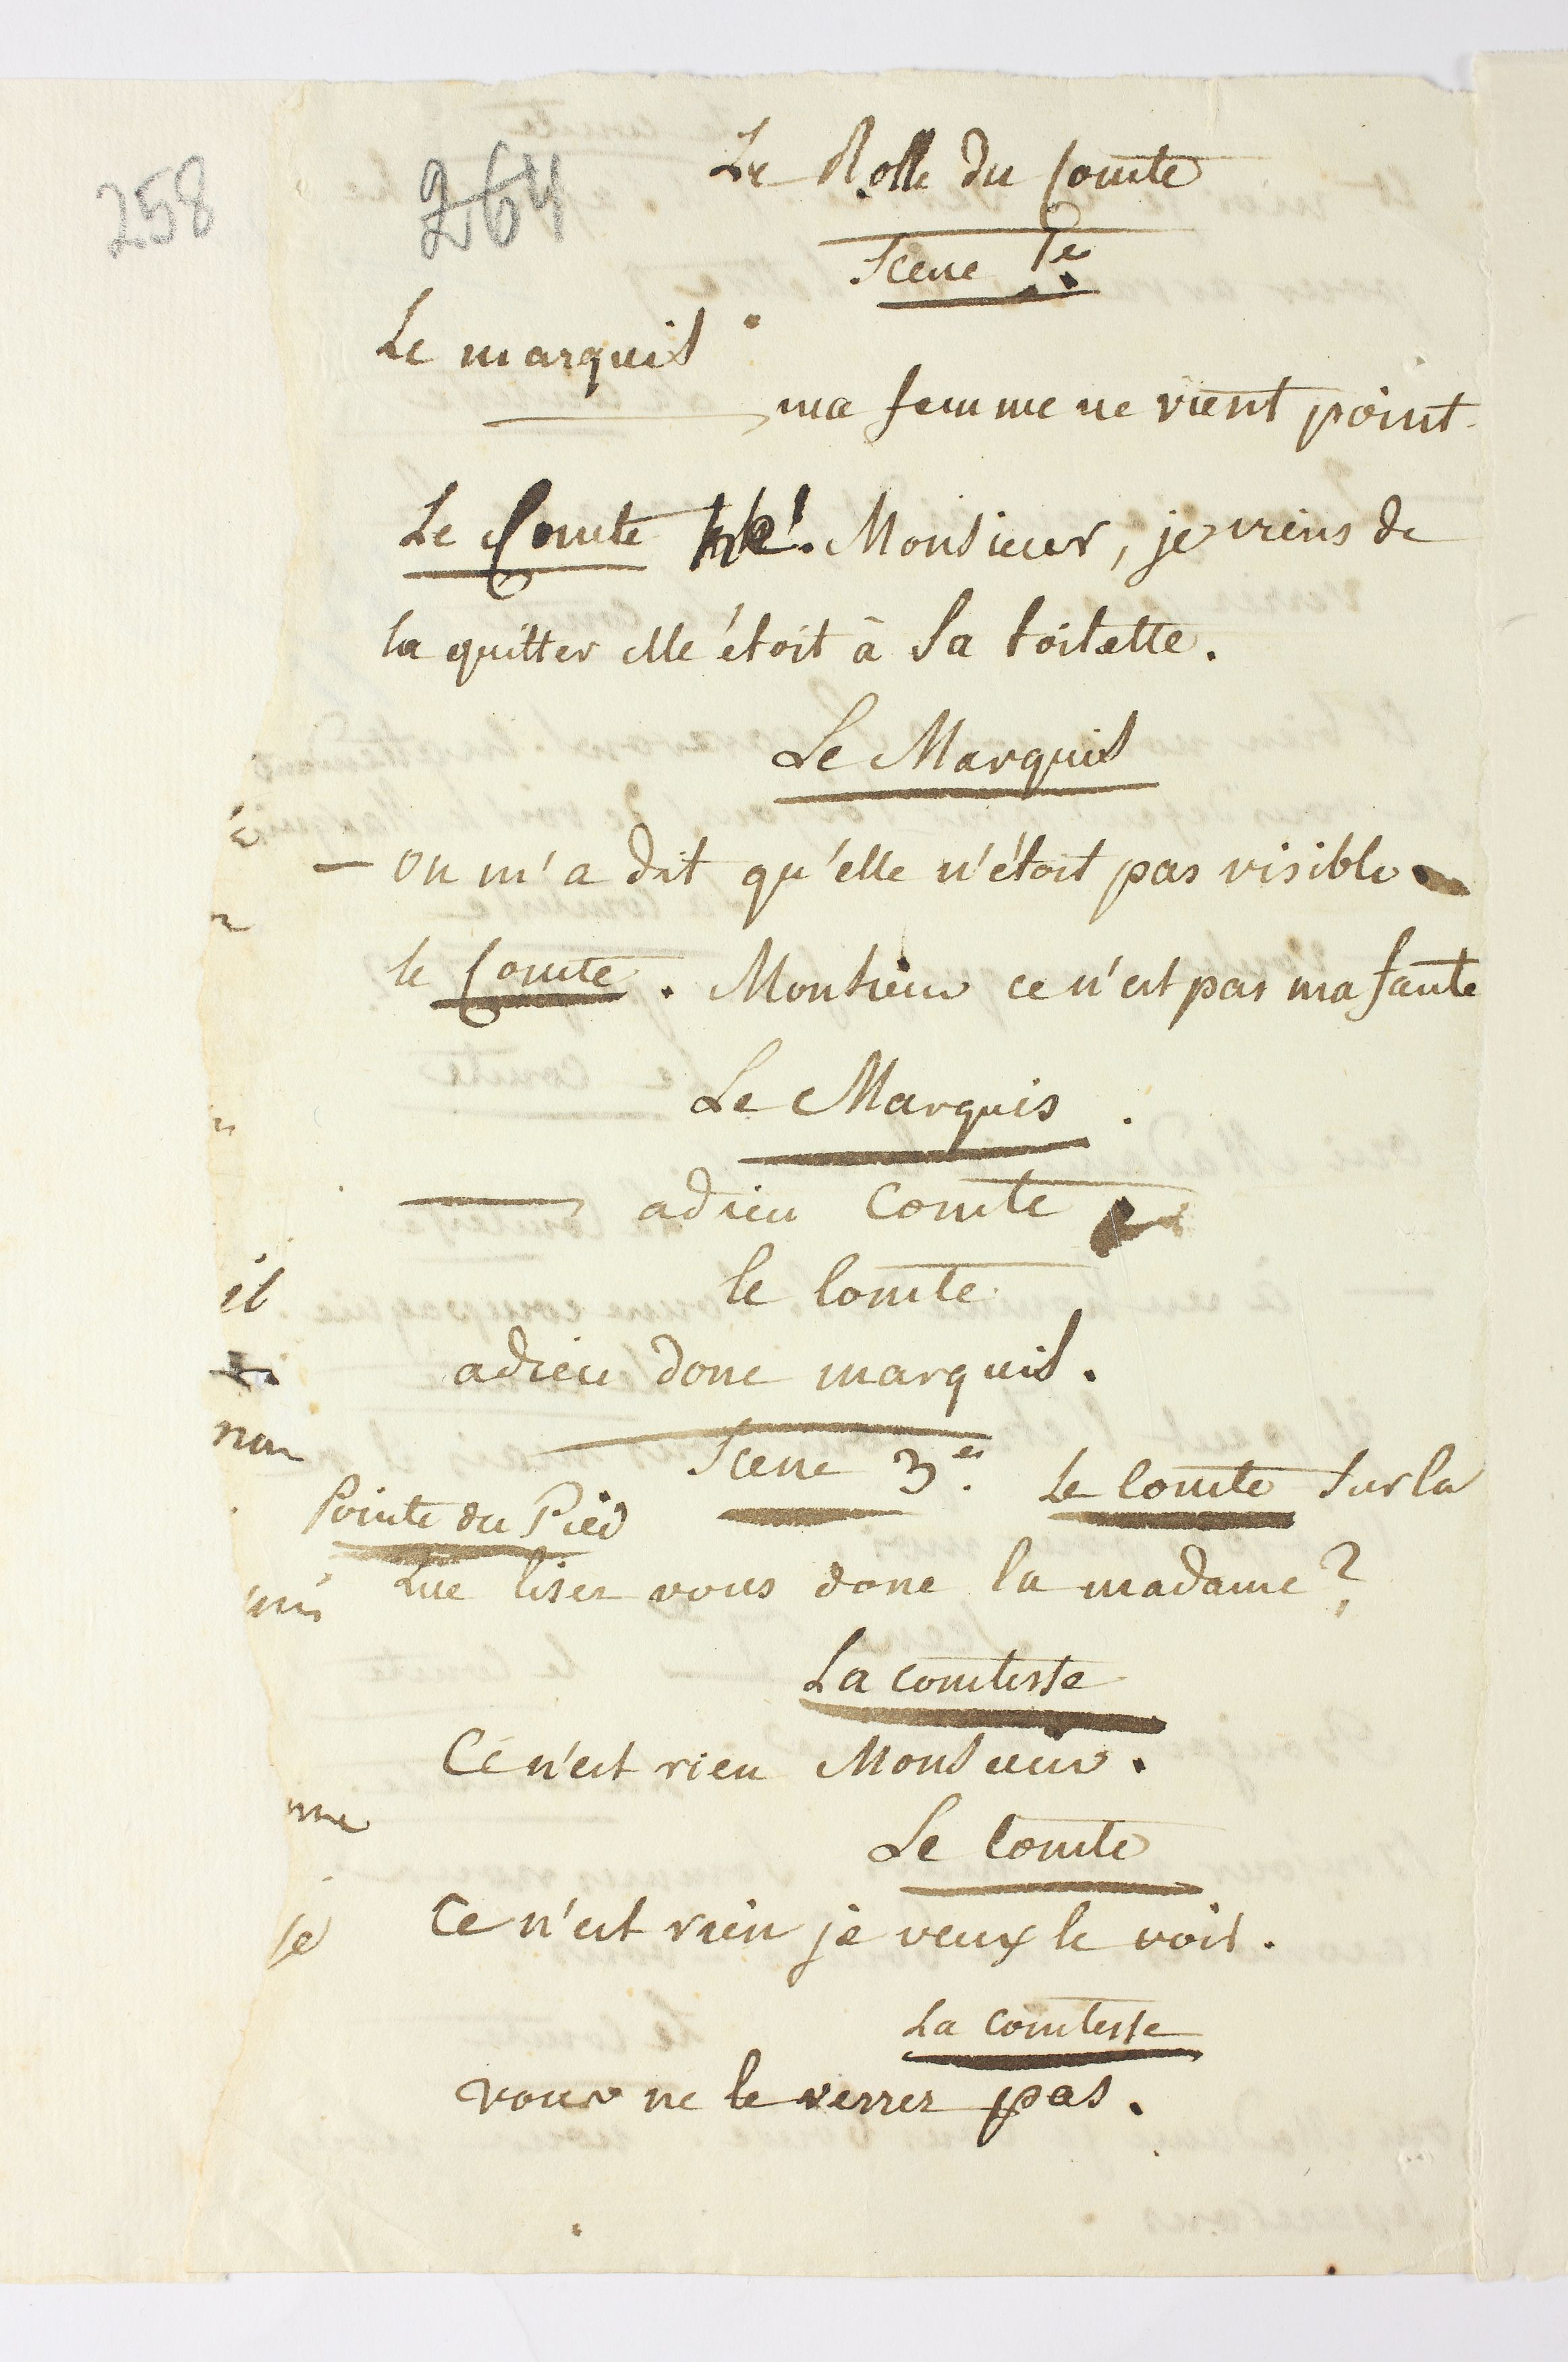 258
264
Le Rolle du Comte
Scene 1e
Le marquis
ma femme ne vient point
Le Comte Monsieur, je viens de
la quitter elle étoit à sa toilette.
Le Marquis
é
— on m'a dit qu'elle n'étoit pas visible
le Comte. Monsieur ce n'est pas ma faute
Le Marquis.
— adieu Comte
il
le Comte
adieu donc marquis.
Scene 3e. Le Comte sur la
Pointe du Pied
Que lisez vous donc la madame?
La comtesse
Ce n'est rien Monsieur.
Le Comte
je
Ce n'est rien je veux le voir.
La comtesse
vous ne le verrez pas.